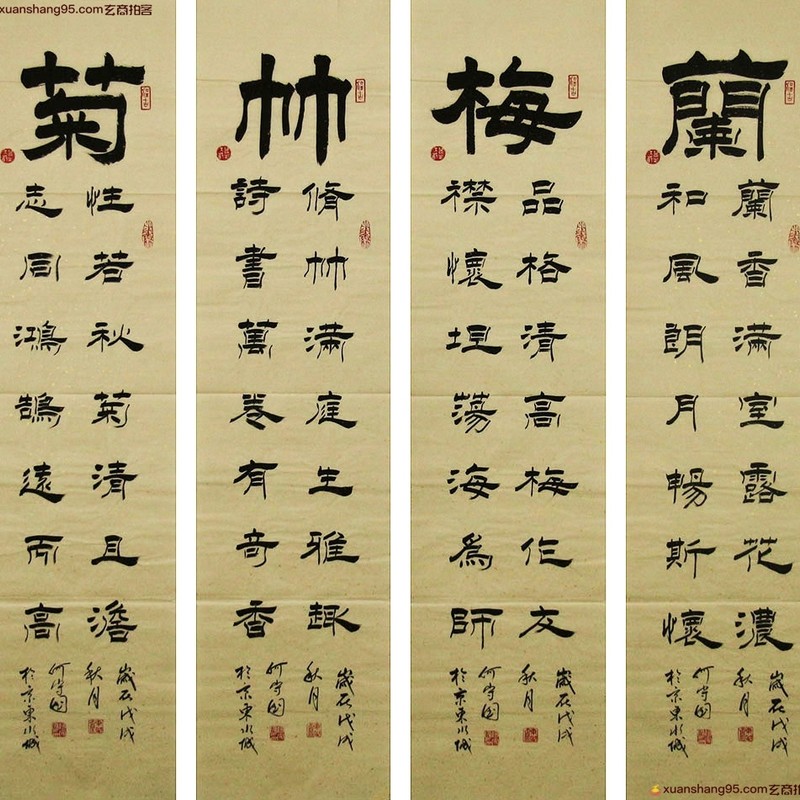 xuanshang95.com玄商拍客
蘭
蘭香滿室露花濃
和風朗月暢斯懷
歲在戊戌
秋月
何守國
於京東水城
梅
品格清高梅作友
襟懷坦蕩海為師
歲在戊戌
秋月
何守國
於京東水城
竹
脩竹滿庭生雅趣
詩書萬卷有奇香
歲在戊戌
秋月
何守國
於京東水城
菊
性若秋菊清且澹
志同鴻鵠遠而高
歲在戊戌
秋月
何守國
於京東水城
xuanshang95.com玄商拍客